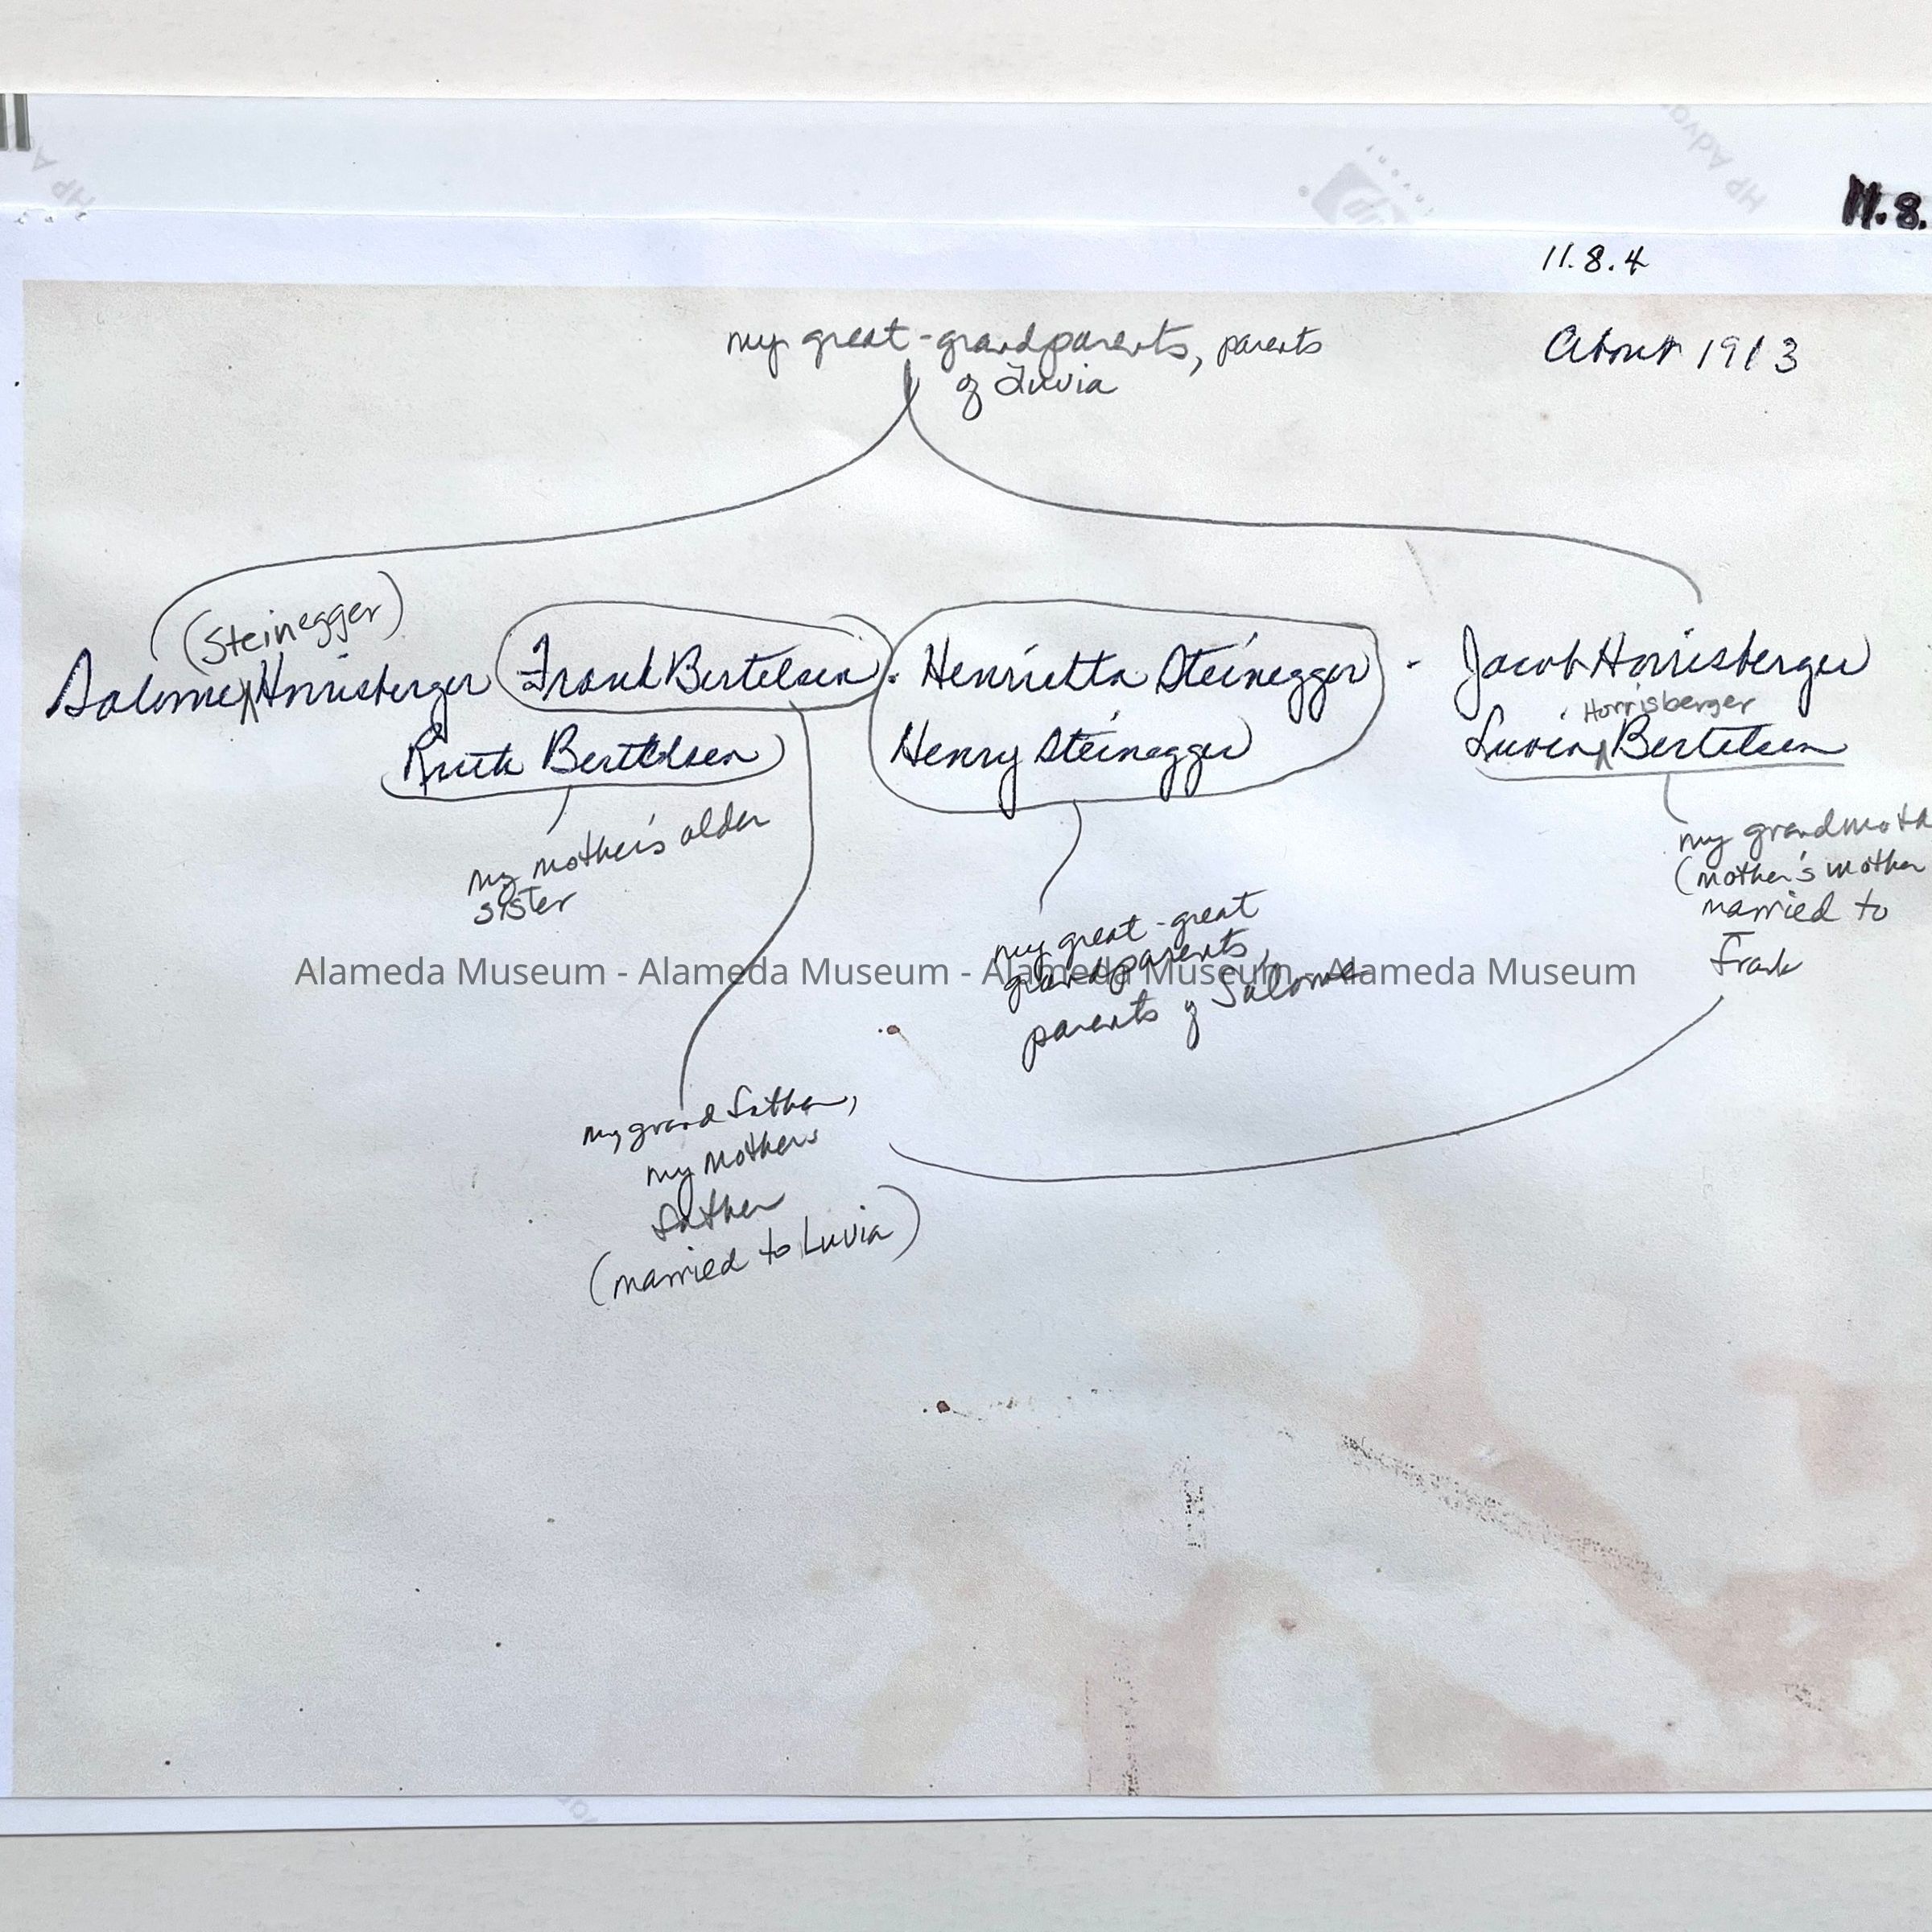 11.8.
11.8.4
About 1913
my great-grandparents, parents
of Luvia
(Steinegger)
Salome Horrisberger Frank Bertelsen . Henrietta Steinegger - Jacob Horrisberger
Horrisberger
Ruth Bertelsen Henry Steinegger Luvia Bertelsen
my mother's older
sister
my grandmoth
(mother's mother
married to
Frank
my great-great
grandparents,
parents of Salome
Alameda Museum - Alameda Museum - Alameda Museum - Alameda Museum
my grandfather,
my mothers
father
(married to Luvia)